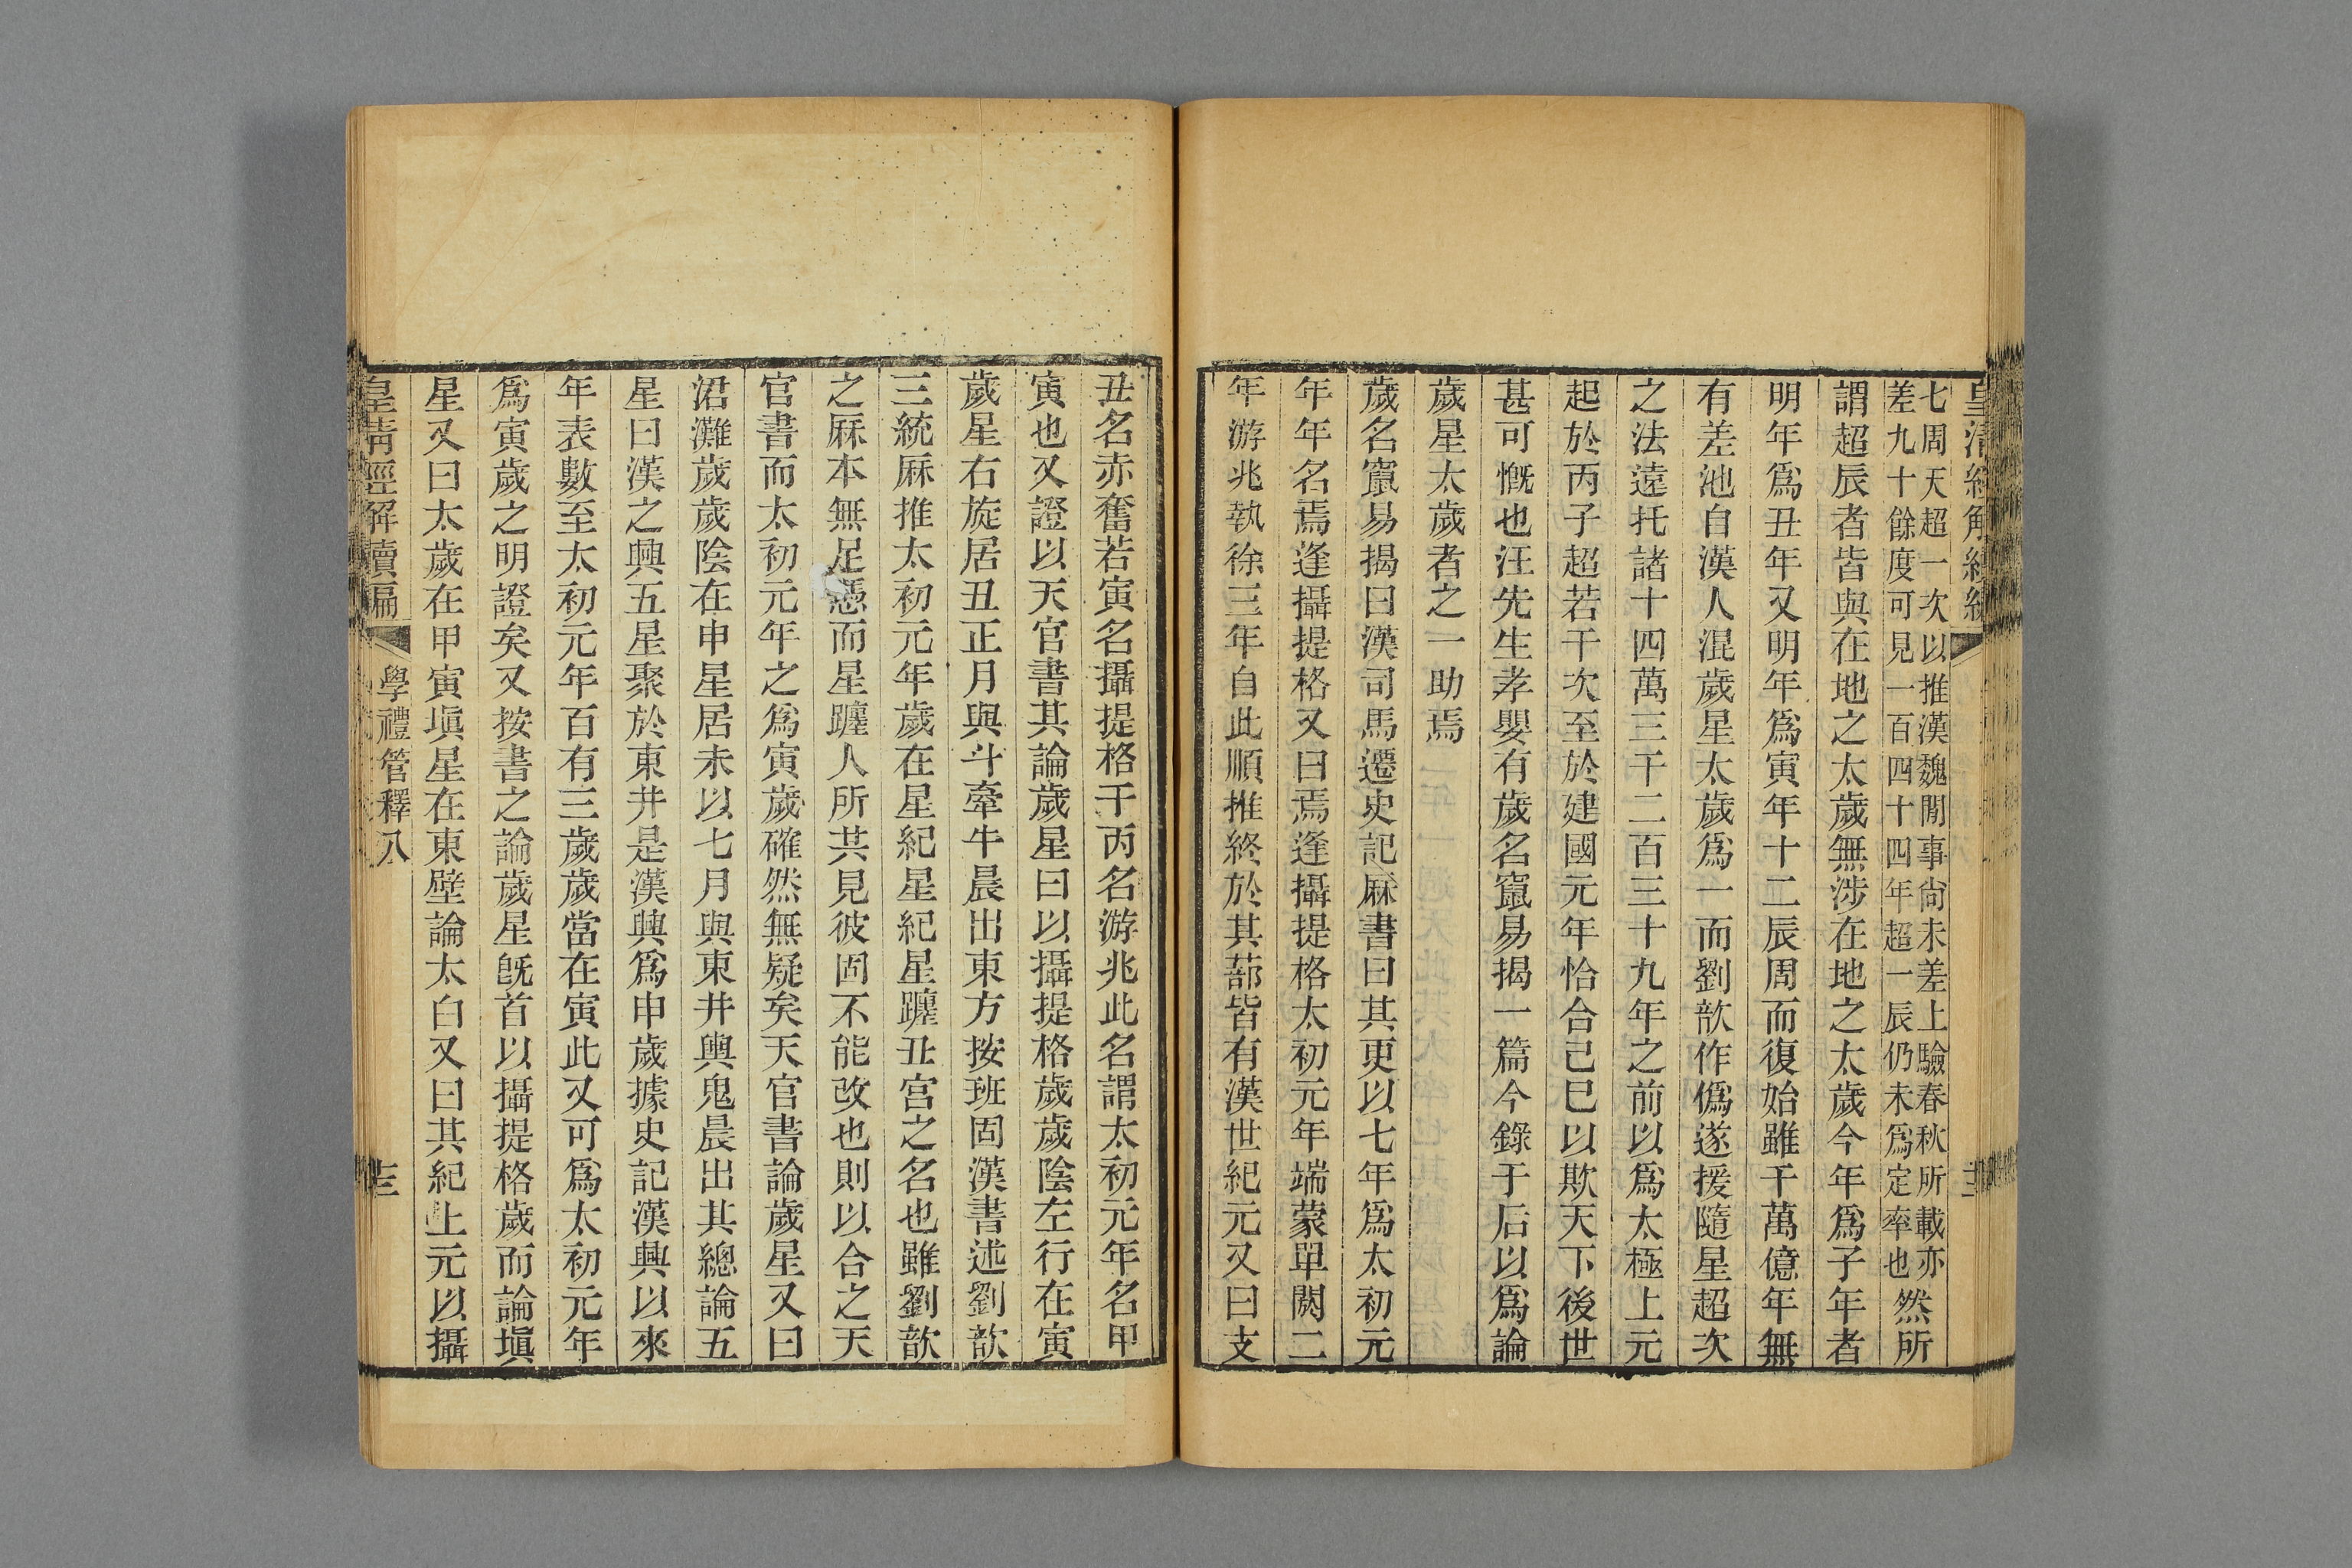 七周天超一次以推漢魏閒事尙未差上驗春秋所載亦
差九十餘度可見一百四十四年超一辰仍未爲定率也
然所
謂超辰者皆與在地之太歲無涉在地之太歲今年爲子年者
明年爲丑年又明年爲寅年十二辰周而復始雖千萬億年無
有差池自漢人混歲星太歲爲一而劉歆作僞遂援隨星超次
之法遠托諸十四萬三千二百三十九年之前以爲太極上元
起於丙子超若干次至於建國元年恰合己巳以欺天下後世
甚可慨也汪先生孝嬰有歲名竄易揭一篇今錄于后以爲論
歲星太歲者之一助焉
歲名竄易揭曰漢司馬遷史記厤書曰其更以七年爲太初元
年年名焉逢攝提格又曰焉逢攝提格太初元年端蒙單閼二
年游兆執徐三年自此順推終於其蔀皆有漢世紀元又曰支
丑名赤奮若寅名攝提格干丙名游兆此名謂太初元年名甲
寅也又證以天官書其論歲星曰以攝提格歲歲陰左行在寅
歲星右旋居丑正月與斗牽牛晨出東方按班固漢書述劉歆
三統厤推太初元年歲在星紀星紀星躔丑宮之名也雖劉歆
之厤本無足憑而星躔人所共見彼固不能改也則以合之天
官書而太初元年之爲寅歲確然無疑矣天官書論歲星又曰
涒灘歲歲陰在申星居未以七月與東井輿鬼晨出其總論五
星曰漢之興五星聚於東井是漢興爲申歲據史記漢興以來
年表數至太初元年百有三歲歲當在寅此又可爲太初元年
爲寅歲之明證矣又按書之論歲星既首以攝提格歲而論塡
星又曰太歲在甲寅塡星在東壁論太白又曰其紀上元以攝
皇清經解續編
學禮管釋八
十三